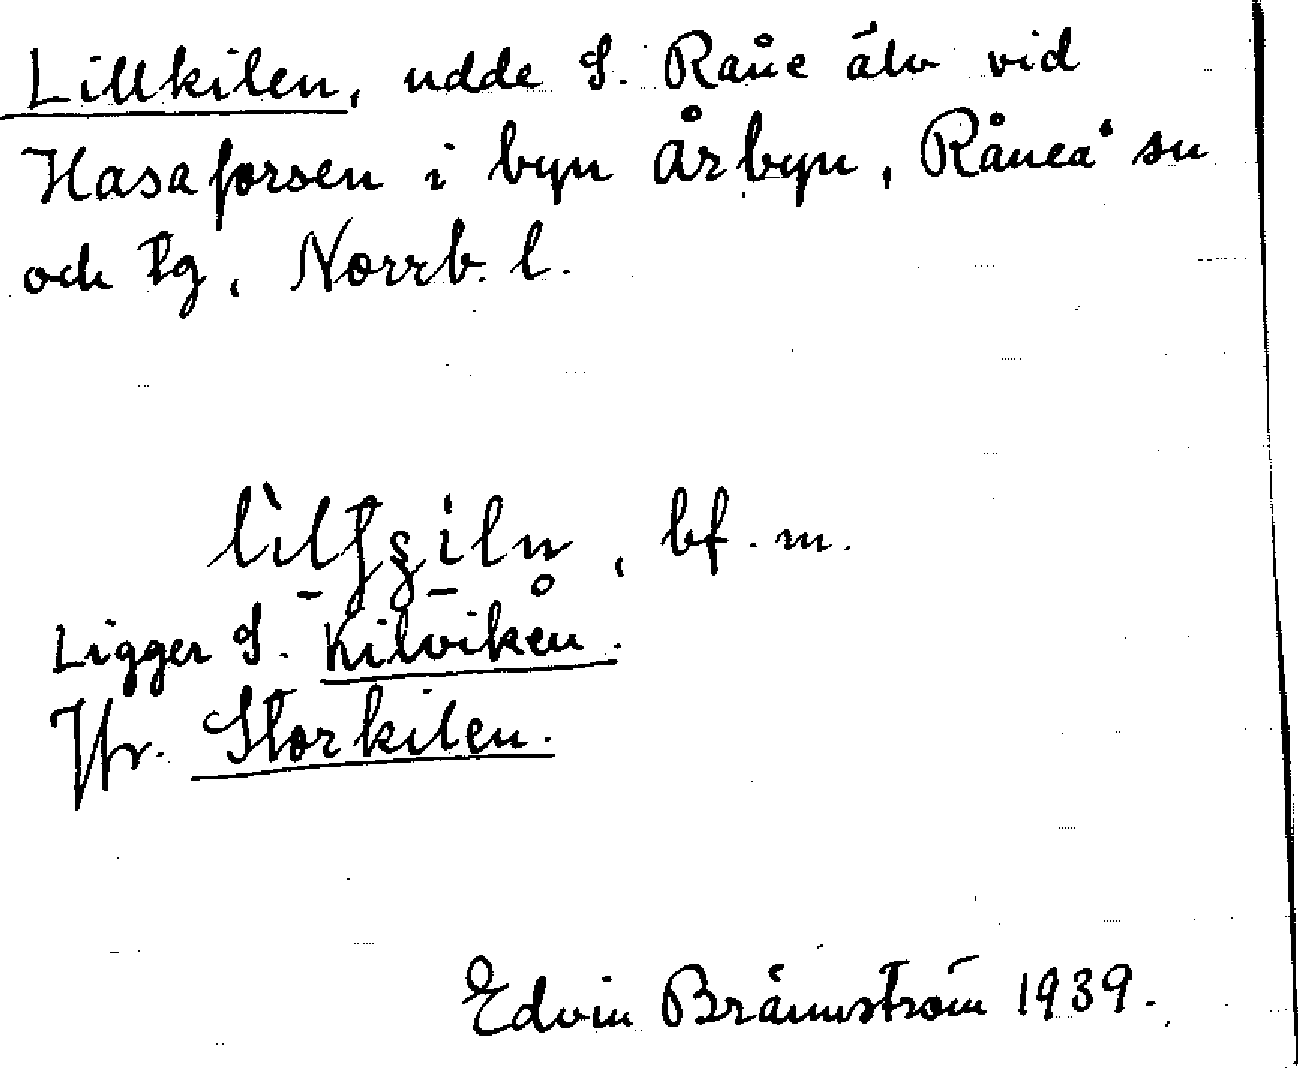 Lillkilen, udde S. Råne älv vid
Hasaforsen i byn Årbyn, Råneå sn
och tg, Norrb. l.
bf. m.
Ligger S. Kilviken.
Jfr. Storkilen.
Edvin Brännström 1939.